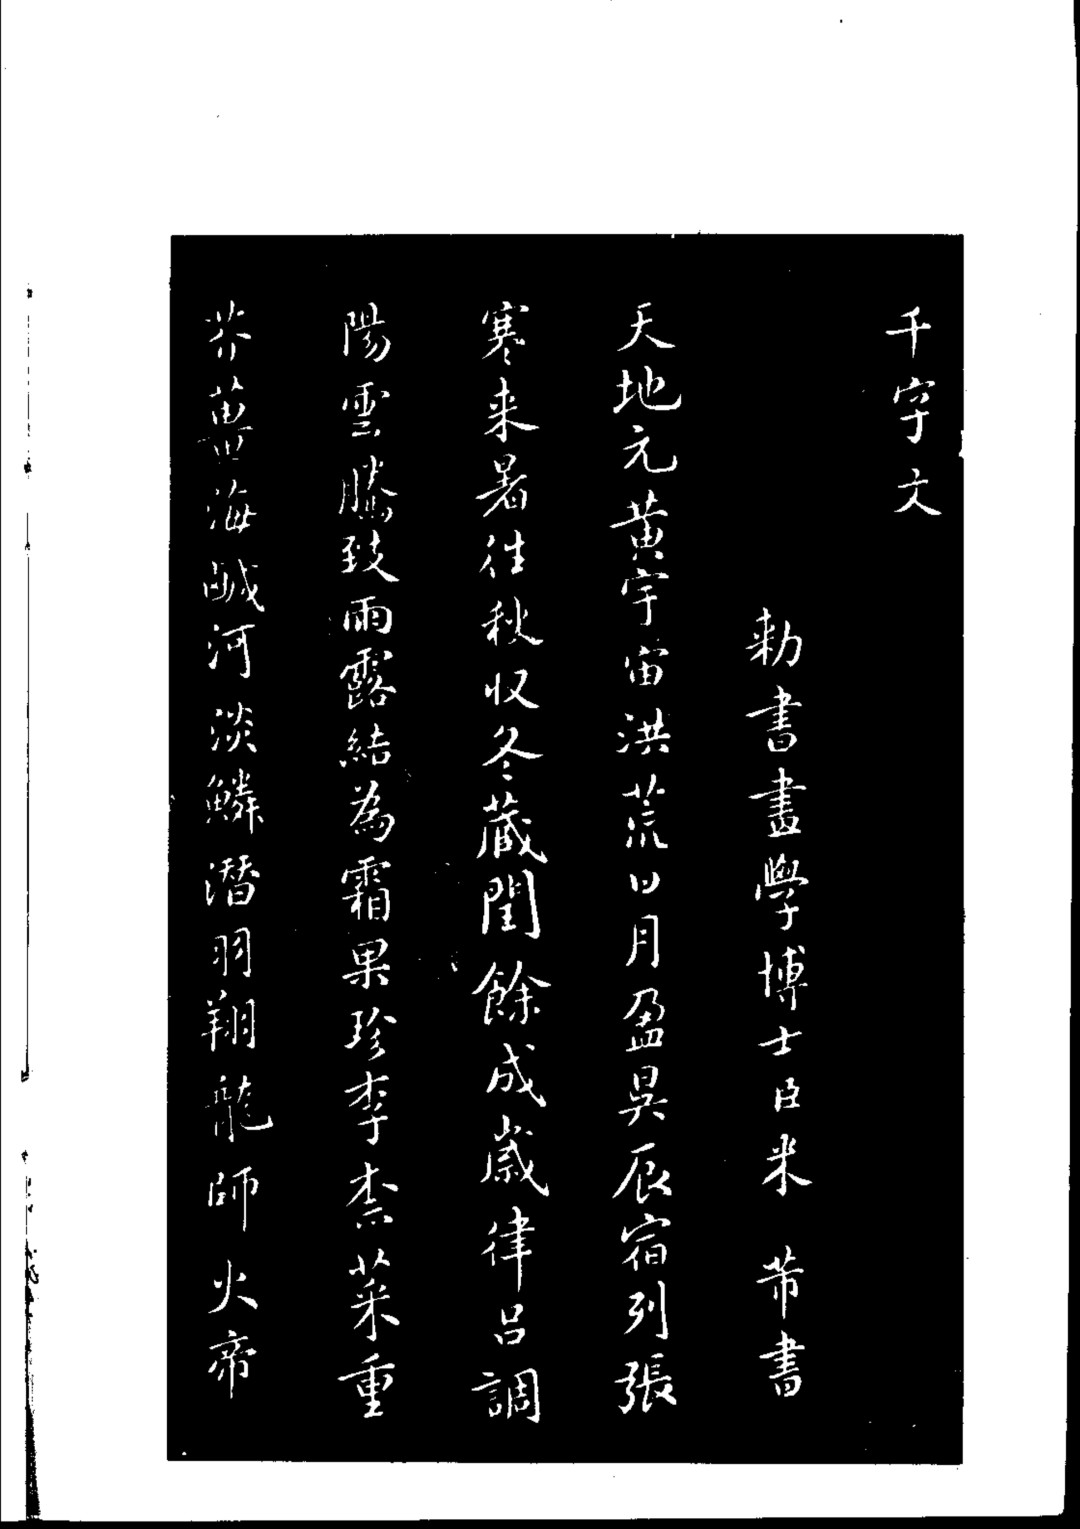 千字文
勅書畫學博士臣米芾書
天地元黃宇宙洪荒日月盈昃辰宿列張
寒来暑往秋収冬藏閏餘成歲律呂調
陽雲騰致雨露結為霜果珍李柰菜重
芥薑海鹹河淡鱗潛羽翔龍師火帝